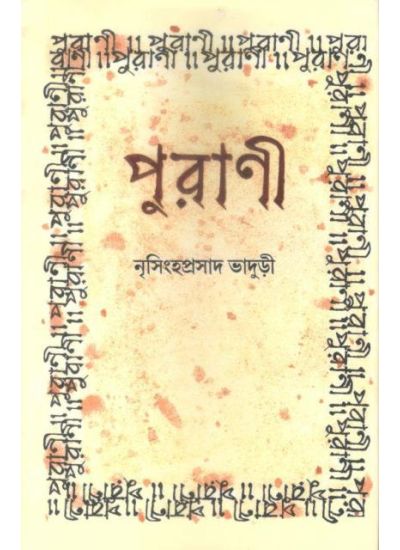 পুরাণী ॥ পুরাণী ॥ পুরাণী ॥ পুরাণী
পুরাণী ॥ পুরাণী ॥ পুরাণী ॥ পুরাণী
পুরাণী
নৃসিংহপ্রসাদ ভাদুড়ী